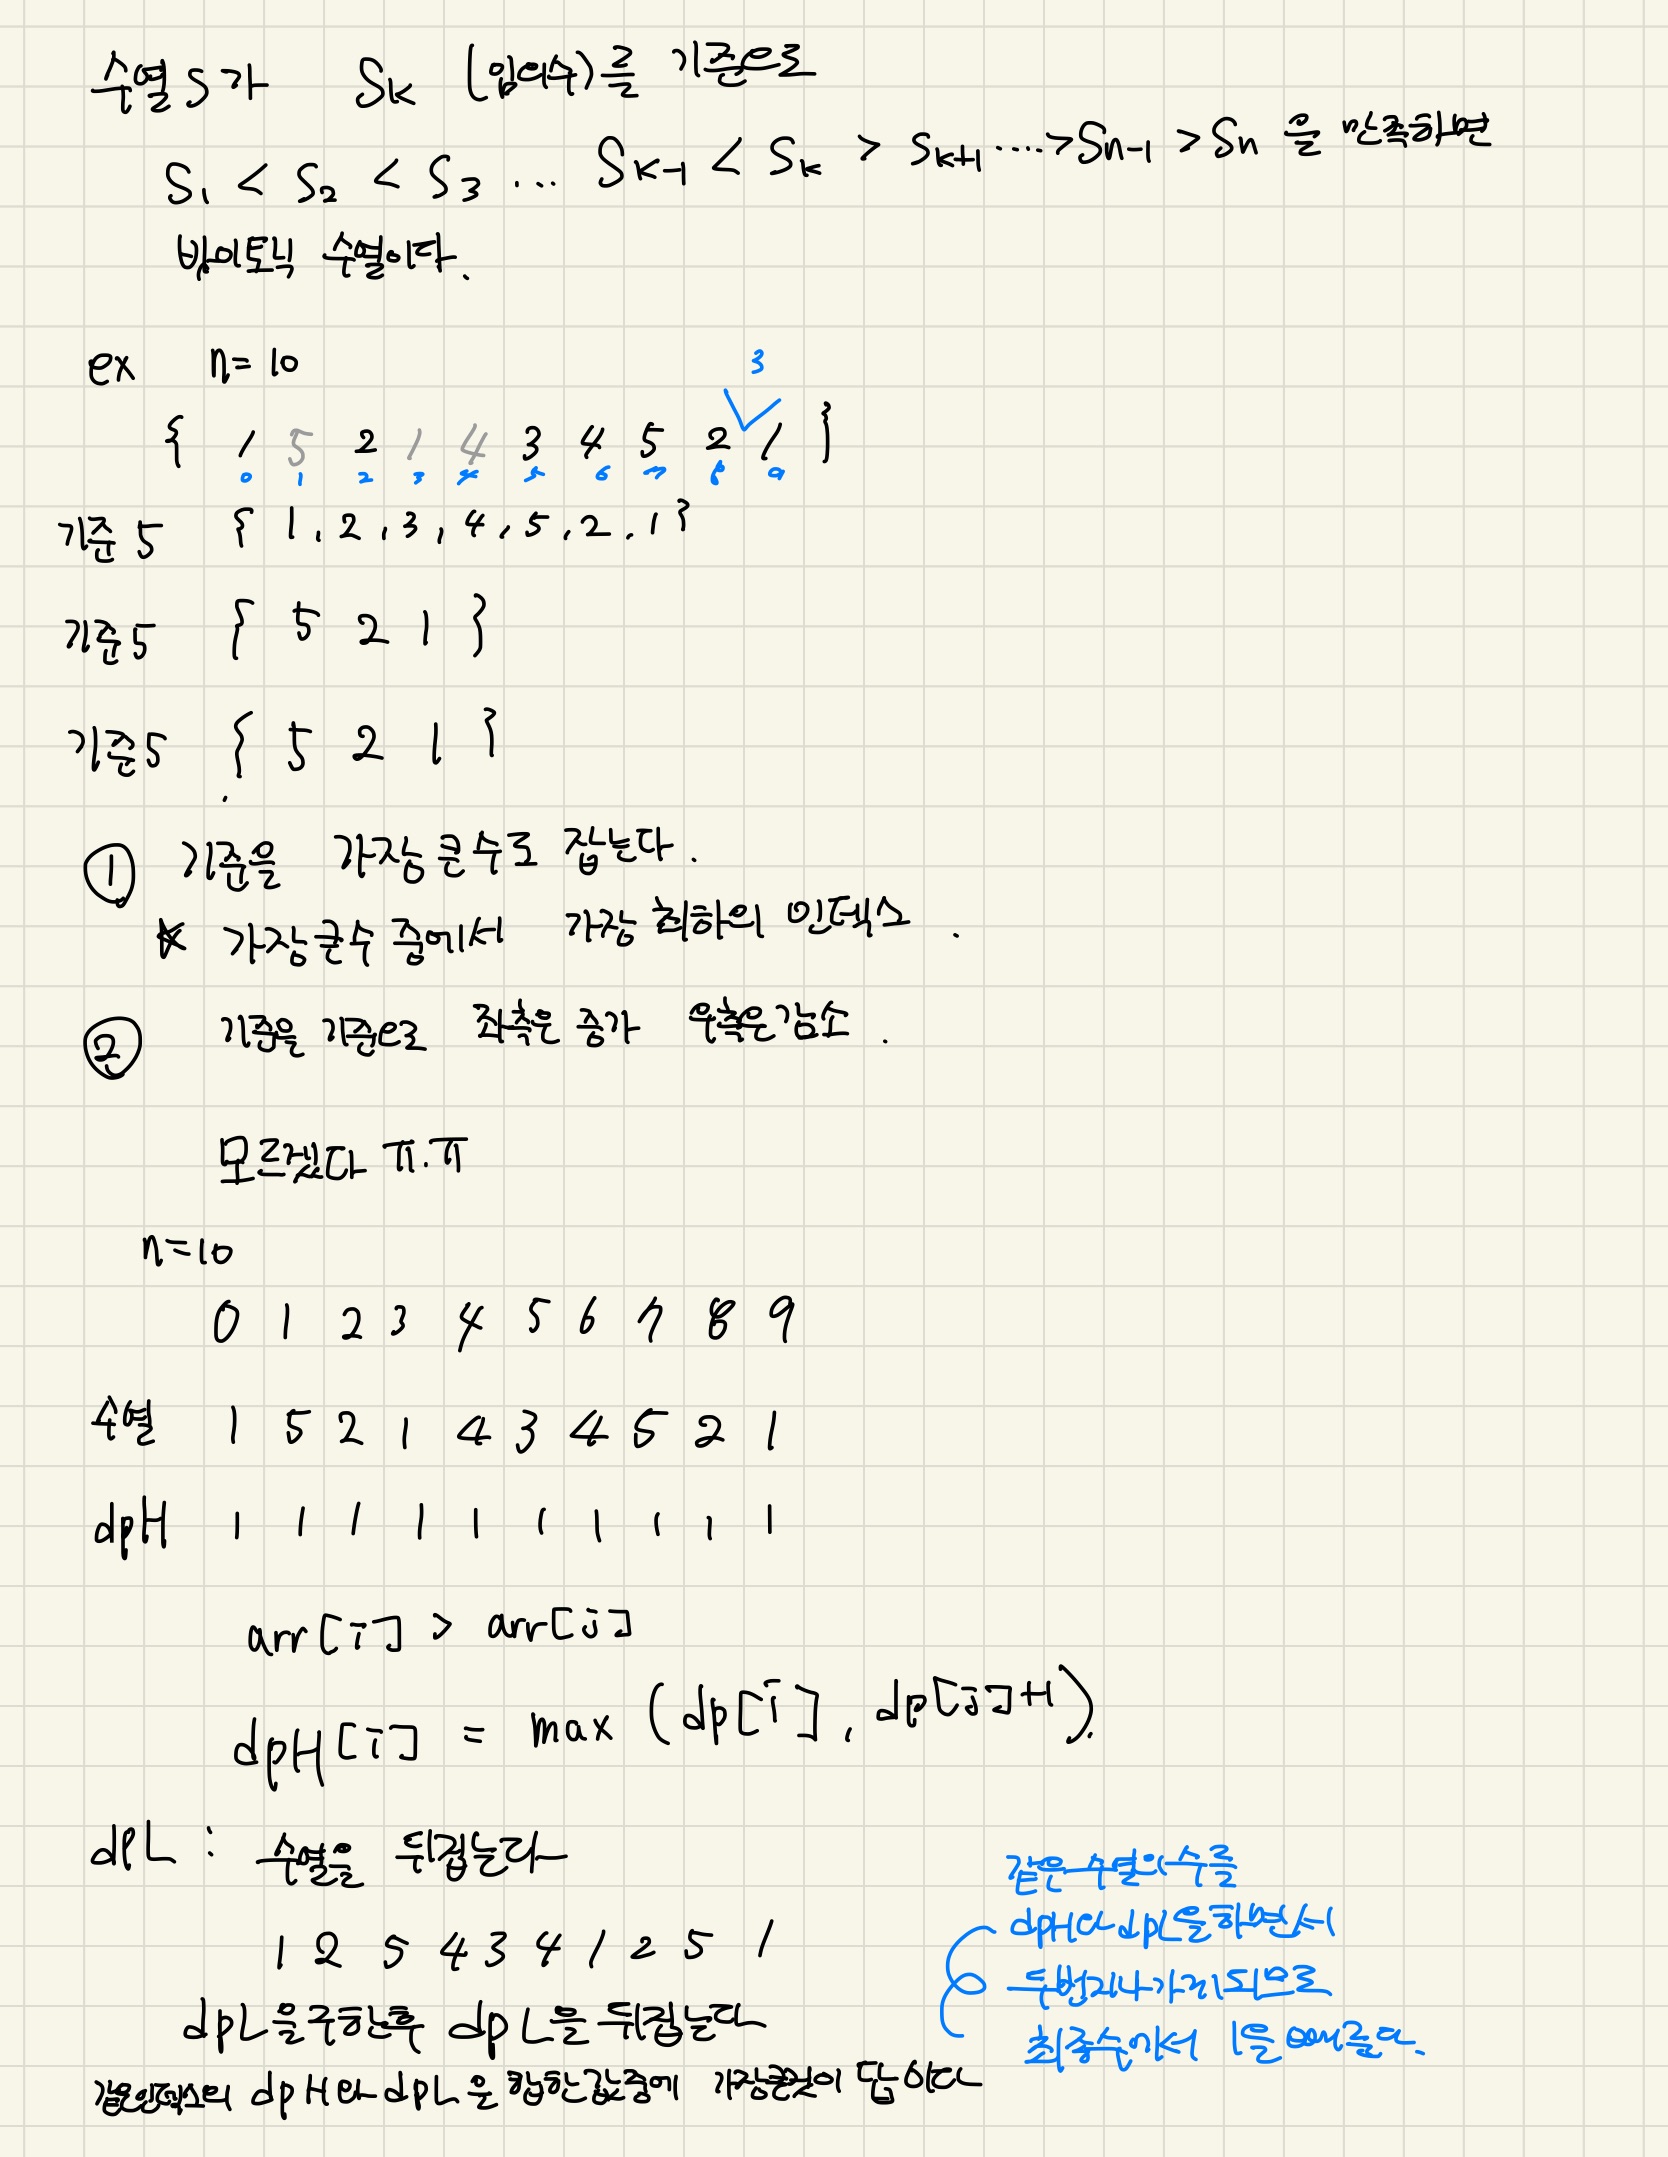 수열 S가 Sk (임의수)를 기준으로
S1 < S2 < S3 ... Sk-1 < Sk > Sk+1 ····> Sn-1 > Sn 을 만족하면
바이토닉 수열이다.
ex n=10
3
{ 1 5 2 1 4 3 4 5 2 1 }
0 1 2 3 4 5 6 7 8 9
기준 5 { 1, 2, 3, 4, 5, 2, 1 }
기준5 { 5 2 1 }
기준5 { 5 2 1 }
① 기준을 가장 큰 수로 잡는다.
★ 가장 큰수 중에서 가장 최하의 인덱스.
② 기준을 기준으로 좌측은 증가 우측은 감소.
모르겠다 ㅠ.ㅠ
n=10
0 1 2 3 4 5 6 7 8 9
수열 1 5 2 1 4 3 4 5 2 1
dpH 1 1 1 1 1 1 1 1 1 1
arr[i] > arr[j]
dpH[i] = max (dp[i], dp[j]+1).
dpL : 수열을 뒤집는다
1 2 5 4 3 4 1 2 5 1
dpL을 구한후 dpL을 뒤집는다
같은인덱스의 dpH와 dpL을 합한값중에 가장큰것이 답이다
같은 수열의 수를
dpH와 dpL을 하면서
두번지나가게되므로
최종수에서 1을 빼준다.